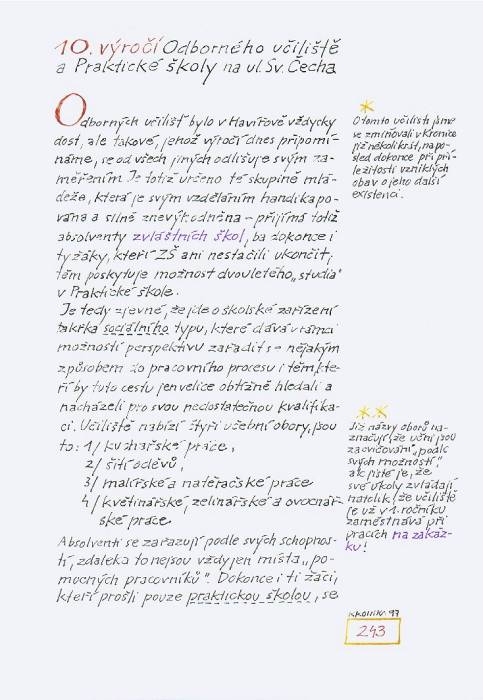 10. výročí Odborného učiliště
a Praktické školy na ul. Sv. Čecha
Odborných učilišť bylo v Havířově vždycky
dost, ale takové, jehož výročí dnes připomí-
náme, se od všech jiných odlišuje svým za-
měřením. Je totiž určeno té skupině mlá-
deže, která je svým vzděláním handikapo-
vána a silně znevýhodněna – přijímá totiž
absolventy zvláštních škol, ba dokonce i
ty žáky, kteří ZŠ ani nestačili ukončit;
těm poskytuje možnost dvouletého „studia"
v Praktické škole.
Je tedy zjevné, že jde o školské zařízení
takřka sociálního typu, které dává v rámci
možností perspektivu zařadit se nějakým
způsobem do pracovního procesu i těm, kte-
ří by tuto cestu jen velice obtížně hledali a
nacházeli pro svou nedostatečnou kvalifika-
ci. Učiliště nabízí čtyři učební obory, jsou
to: 1/ kuchařské práce,
2/ šití oděvů,
3/ malířské a natěračské práce
4/ květinářské, zelinářské a ovocnář-
ské práce.
Absolventi se zařazují podle svých schopnos-
tí, zdaleka to nejsou vždy jen místa „po-
mocných pracovníků". Dokonce i ti žáci,
kteří prošli pouze praktickou školou, se
*
O tomto učilišti jsme
se zmiňovali v Kronice
již několikrát, napo-
sled dokonce při pří-
ležitosti vzniklých
obav o jeho další
existenci.
**
Již názvy oborů na-
značují, že učni jsou
zacvičováni „podle
svých možností",
ale jisté je, že
své úkoly zvládají
natolik, že učiliště
je už v 1. ročníku
zaměstnává při
pracích na zakáz-
ku!
Kronika 97
243